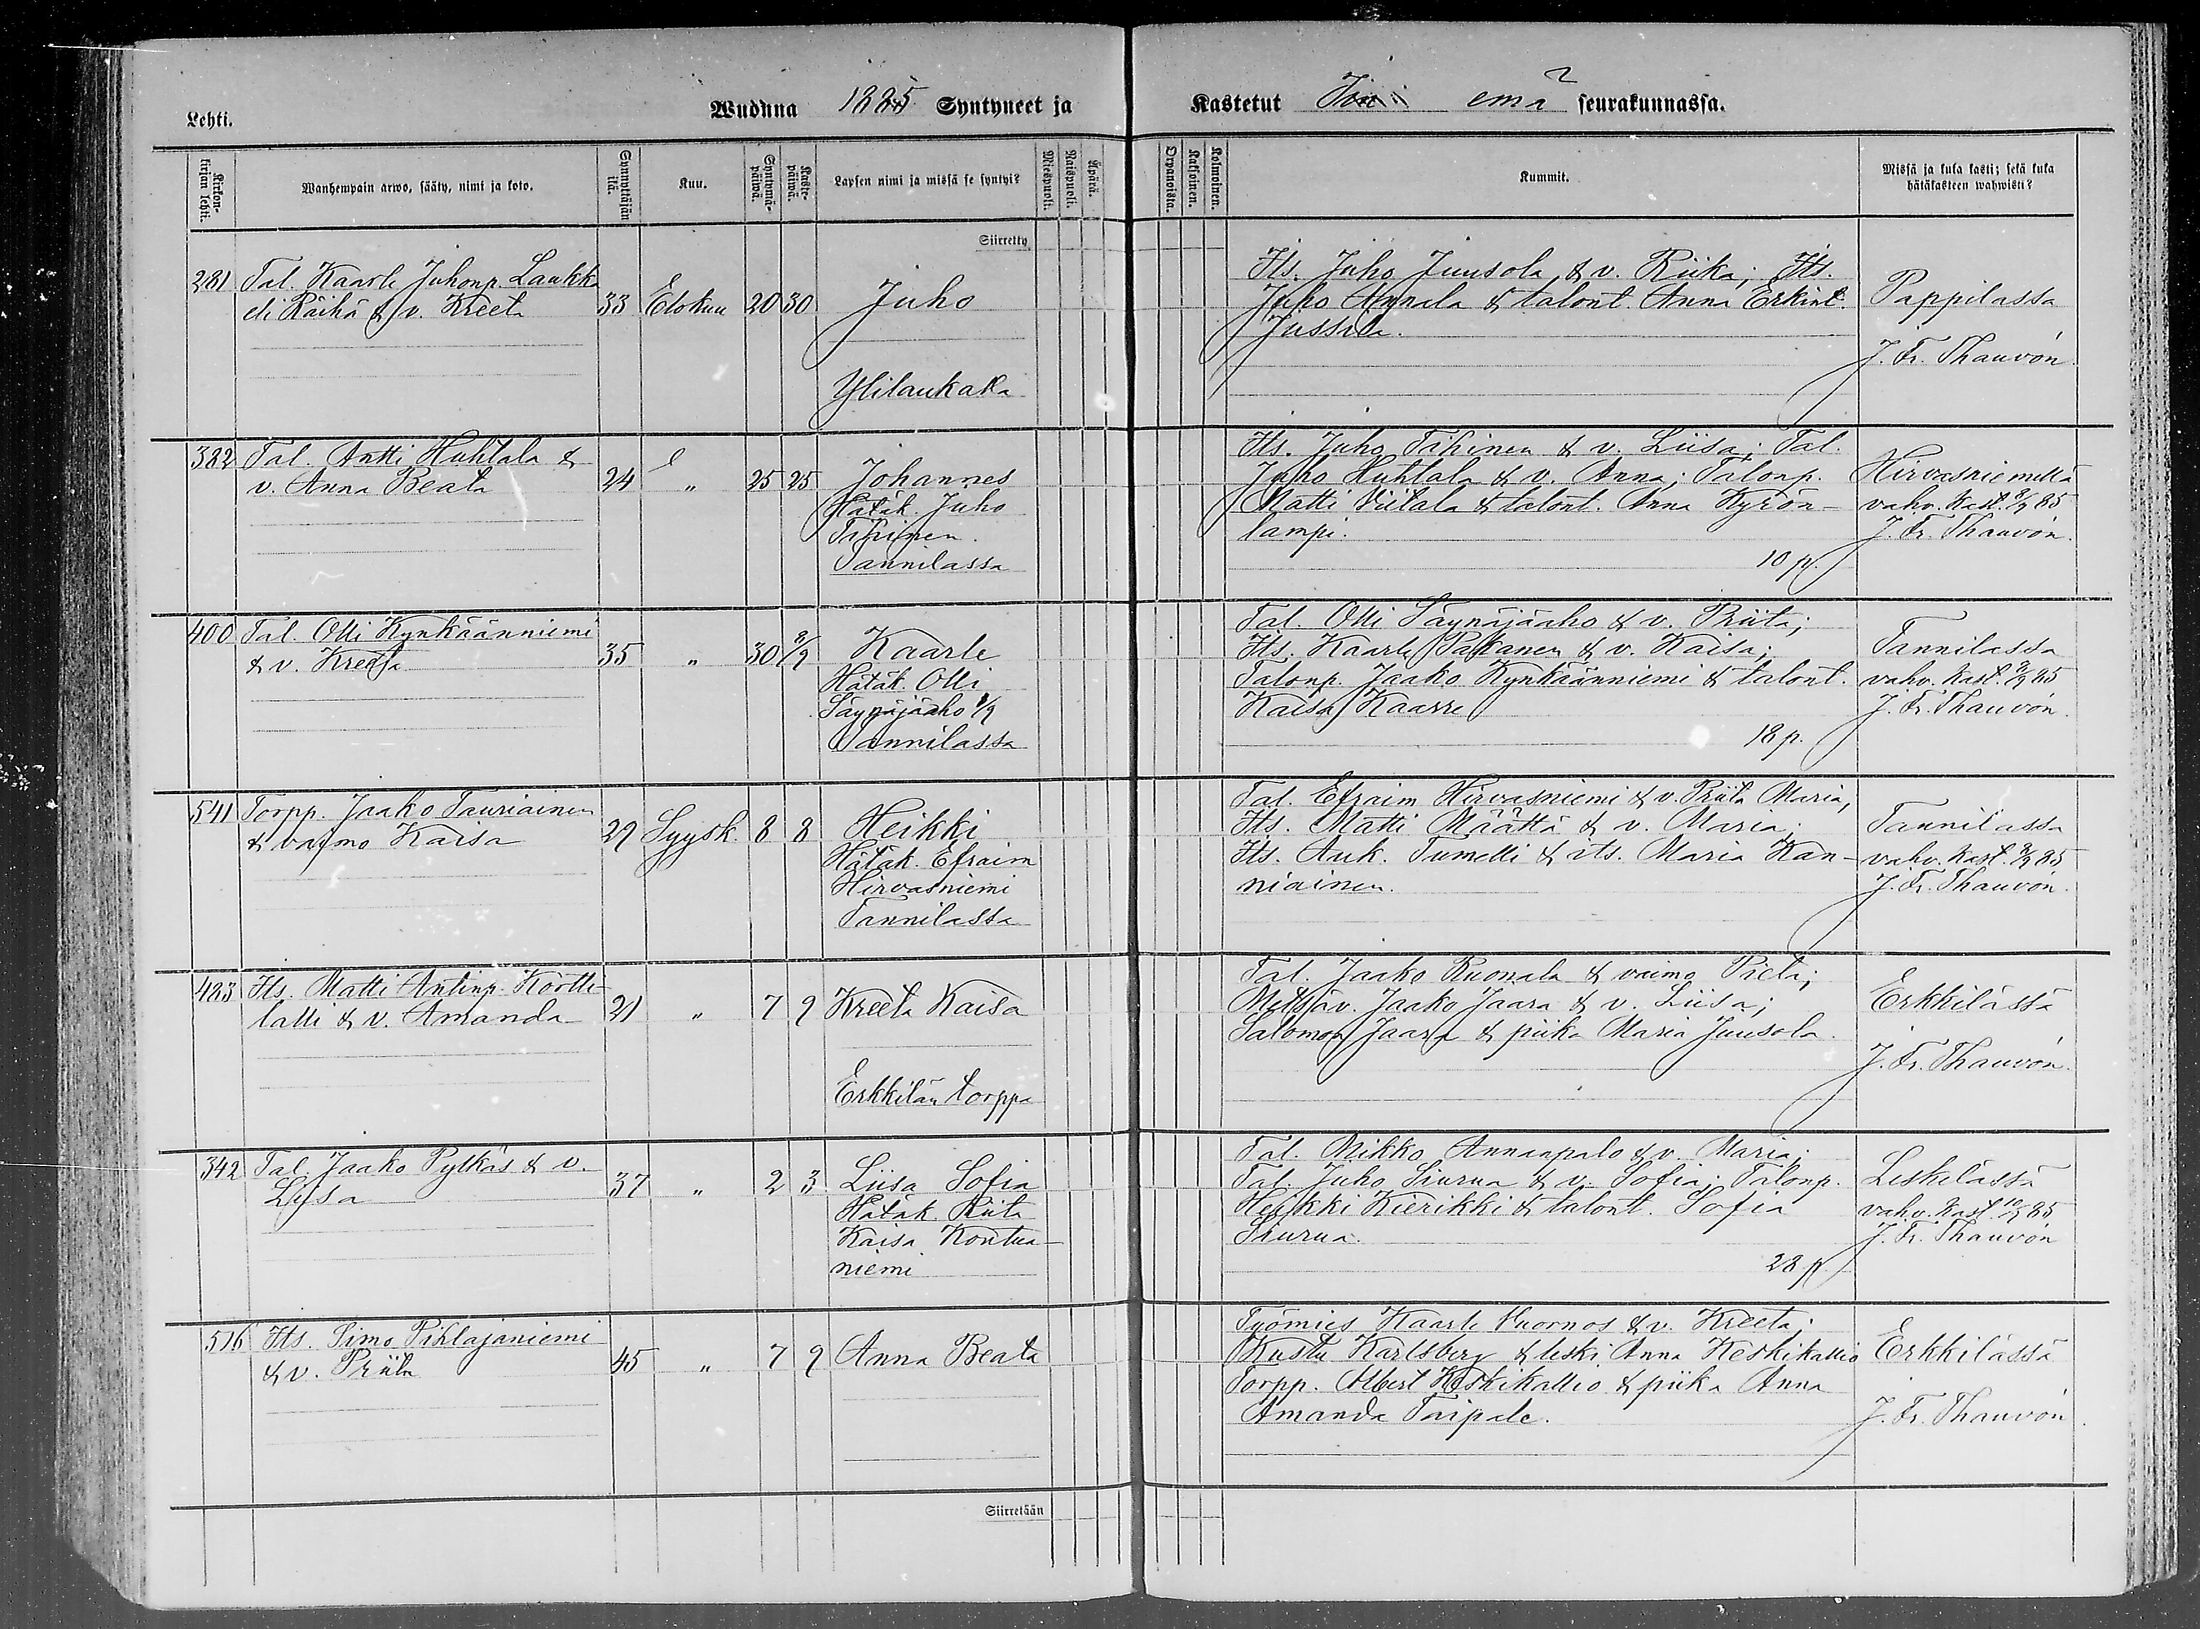 Lehti.
Wuonna 1885 Syntyneet ja
Kastetut Iin emä seurakunnassa.
Kirkon-
kirjan lehti.
Wanhempain arwo, sääty, nimi ja koto.
Synnyttäjän
ikä.
Kuu.
Syntymä-
päiwä.
Kaste-
päiwä.
Lapsen nimi ja missä se syntyi?
Miespuoli.
Naispuoli.
Äpärä.
Orpanoista.
Kaksoinen.
Kolmoinen.
Kummit.
Missä ja kuka kasti; sekä kuka
hätäkasteen wahwisti?
Siirretty
281 Tal. Kaarle Juhonp. Laukka
eli Räihä & v. Kreeta 33 Elokuu 20 30 Juho
Ylilaukaka
Its. Juho Juusola & v. Riika; Its.
Juho Annala & talont. Anna Erkint.
Jussila.
Pappilassa
J. Fr. Thauvón.
382 Tal. Antti Huhtala &
v. Anna Beata 24 " 25 25 Johannes
Hätäk. Juho
Tihinen.
Tannilassa
Its. Juho Tihinen & v. Liisa; Tal.
Juho Huhtala & v. Anna; Talonp.
Matti Viitala & talont. Anna Kyrön-
lampi.
10 p.
Hirvasniemellä
vahv. Kast. 8/9 85
J. Fr. Thauvón.
400 Tal. Olli Kynkäänniemi
& v. Kreeta 35 " 30 8/9 Kaarle
Hätäk. Olli
Säynäjäaho 1/9
Tannilassa
Tal. Olli Säynäjäaho & v. Priita;
Its. Kaarle Pakanen & v. Kaisa;
Talonp. Jaako Kynkäänniemi & talont.
Kaisa Kaarre
18 p.
Tannilassa
vahv. Kast. 8/9 85
J. Fr. Thauvón.
541 Torpp. Jaako Tauriainen
& vaimo Kaisa 29 Syysk. 8 8 Heikki
Hätäk. Efraim
Hirvasniemi
Tannilassa
Tal. Efraim Hirvasniemi & v. Priita Maria,
Its. Matti Määttä & v. Maria;
Its. Auk. Tumelli & its. Maria Kan-
niainen.
Tannilassa
vahv. Kast. 8/9 85
J. Fr. Thauvón.
483 Its. Matti Antinp. Körtte-
latti & v. Amanda 21 " 7 9 Kreeta Kaisa
Erkkilän torppa
Tal. Jaako Ruonala & vaimo Pieta;
Metsäv. Jaako Jaara & v. Liisa;
Salomon Jaara & piika Maria Juusola.
Erkkilässä
J. Fr. Thauvón.
342 Tal. Jaako Pytkäs & v.
Liisa 37 " 2 3 Liisa Sofia
Hätäk. Riita
Kaisa Kontua-
niemi
Tal. Mikko Annanpalo & v. Maria;
Tal. Juho Siurua & v. Sofia; Talonp.
Heikki Kierikki & talont. Sofia
Siurua.
28 p.
Leskelässä
vahv. Kast. 10/9 85
J. Fr. Thauvón
516 Its. Simo Pihlajaniemi
& v. Priita 45 " 7 9 Anna Beata
Työmies Kaarle Vuornos & v. Kreeta;
Kustu Karlsberg & leski Anna Keskikallio
Torpp. Albert Keskikallio & piika Anna
Amanda Taipale.
Erkkilässä
J. Fr. Thauvón.
Siirretään